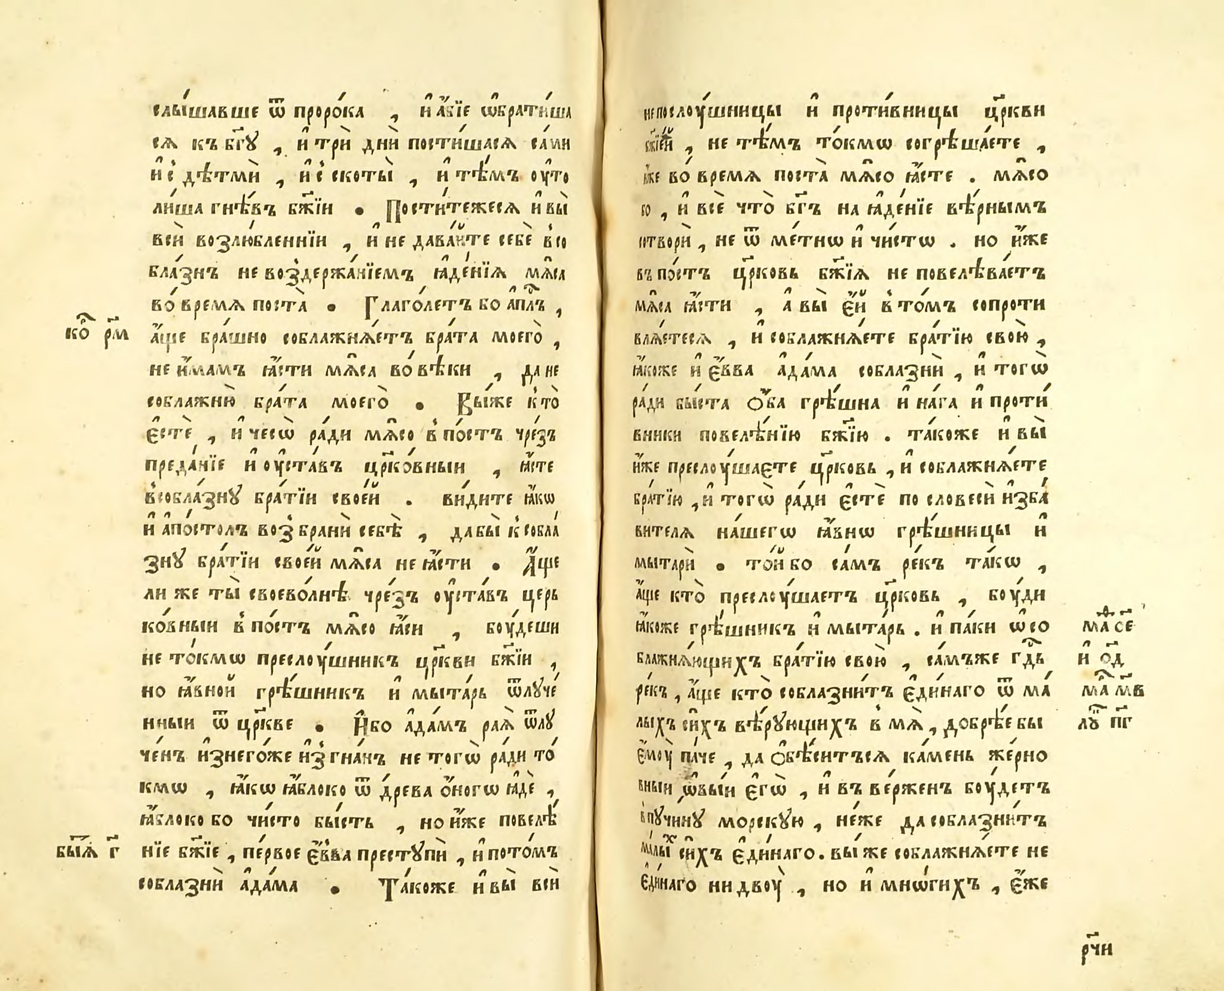 слы́шавше ѿ проро́ка , и҆ а҆́бїе ѡ҆брати́ша
сѧ къ бг҃ꙋ , и҆ трѝ днѝ пости́шасѧ са́ми
и҆ с̾ дѣтмѝ , и҆ с̾ скоты̀ , и҆ тѣ́мъ оу҆то
лиша гнѣ́въ бж҃їи • Пости́тежесѧ и҆ вы̀
всѝ возлю́бленнїи , и҆ не дава́йте себѐ в̾со
бла́знъ невоздержа́нїемъ ꙗ҆де́нїѧ мѧ́са
во́ времѧ поста̀ • Глаго́летъ бо а҆пⷭ҇лъ ,
коⷬ҇ рм҃
а҆́ще бра́шно соблажнѧ́етъ бра́та моего̀ ,
не и҆́мамъ ꙗ҆́сти мѧ́са во́ вѣки , да не
соблажню̀ бра́та моего̀ • Вы́же кто̀
є҆стѐ , и҆ чесѡ̀ ра́ди мѧ́со в̾ по́стъ чре́зъ
преда́нїе и҆ оу҆ста́въ цр҃ко́вныи , ꙗ҆́сте
в̾собла́знꙋ бра́тїи свое́й . ви́дите ꙗ҆́кѡ
и҆ а҆по́столъ возбранѝ себѣ̀ , дабы̀ к̾ собла
знꙋ̀ бра́тїи свое́й мѧ́са не ꙗ҆́сти • А҆́ще
ли же ты̀ своево́лнѣ чре́зъ оу҆ста́въ цер
ко́вныи в̾ по́стъ мѧ́со ꙗ҆́си , боу́деши
не то́кмѡ преслоу́шникъ цр҃кви бж҃їи ,
но ꙗ҆́вной грѣ́шникъ и҆ мыта́рь ѿлꙋче́
нныи ѿ цр҃кве • И҆́бо а҆да́мъ раѧ̀ ѿлꙋ
че́нъ и҆ з̾него́же и҆згна́нъ не тогѡ̀ ра́ди то́
кмѡ , ꙗ҆́кѡ ꙗ҆́блоко ѿ дре́ва о҆́ногѡ ꙗ҆дѐ ,
ꙗ҆́блоко бо чи́сто бы́сть , но и҆́же повелѣ́
быⷮїѧ г҃
нїе бж҃їе , пе́рвое є҆́вва престꙋпѝ , и҆ пото́мъ
соблазнѝ а҆да́ма • Та́коже и҆ вы̀ всѝ
непослоу́шницы и҆ проти́вницы цр҃кви
бж҃їей , не тѣ́мъ то́кмѡ согрѣша́ете ,
и҆́же во́ времѧ поста̀ мѧ́со ꙗ҆́сте . мѧ́со
бо , и҆ всѐ что̀ бг҃ъ на ꙗ҆де́нїе вѣ́рнымъ
сотворѝ , не ѿ ме́тнѡ и҆ чи́стѡ . но и҆́же
въ по́стъ цр҃ковь бж҃їѧ не повелѣва́етъ
мѧ́са ꙗ҆́сти , а҆ вы̀ є҆́й в̾ то́мъ сопроти
влѧ́етесѧ , и҆ соблажнѧ́ете бра́тїю свою̀ ,
ꙗ҆́коже и҆ є҆́вва а҆да́ма соблазнѝ , и҆ тогѡ̀
ра́ди бы́ста о҆́ба грѣ́шна и҆ на́га и҆ проти́
вники повелѣ́нїю бж҃їю . та́коже и҆ вы̀
и҆́же преслоу́шаете цр҃ковь , и҆ соблажнѧ́ете
бра́тїю , и҆ тогѡ̀ ра́ди є҆стѐ по словесѝ и҆зба́
вителѧ на́шегѡ ꙗ҆́внѡ грѣ́шницы и҆
мытарѝ • то́й бо са́мъ ре́къ та́кѡ ,
а҆́ще кто̀ преслоу́шаетъ цр҃ковь , боу́ди
ꙗ҆́коже грѣ́шникъ и҆ мыта́рь . и҆ па́ки ѡ҆ со
маⷴ се҃
блажнѧ́ющихъ бра́тїю свою̀ , са́мъже гдⷭ҇ь
и҆ о҆д
ре́къ , а҆́ще кто̀ соблазни́тъ є҆ди́наго ѿ ма́
маⷬ҇ мв҃
лыхъ си́хъ вѣ́рꙋющихъ в̾ мѧ̀ , добрѣ́е бы
лꙋⷦ҇ пг҃
є҆моу̀ па́че , да ѻ҆бѣ́ситъсѧ ка́мень же́рно
вныи ѡ҆ вы́и є҆гѡ̀ , и҆ въ ве́рженъ боу́детъ
в̾пꙋчи́нꙋ морскꙋ́ю , не́же да соблазни́тъ
малыⷯ си́хъ є҆ди́наго . вы́ же соблажнѧ́ете не
є҆ди́наго ни двоу̀ , но и҆ мнѡ́гихъ , є҆́же
рч҃и